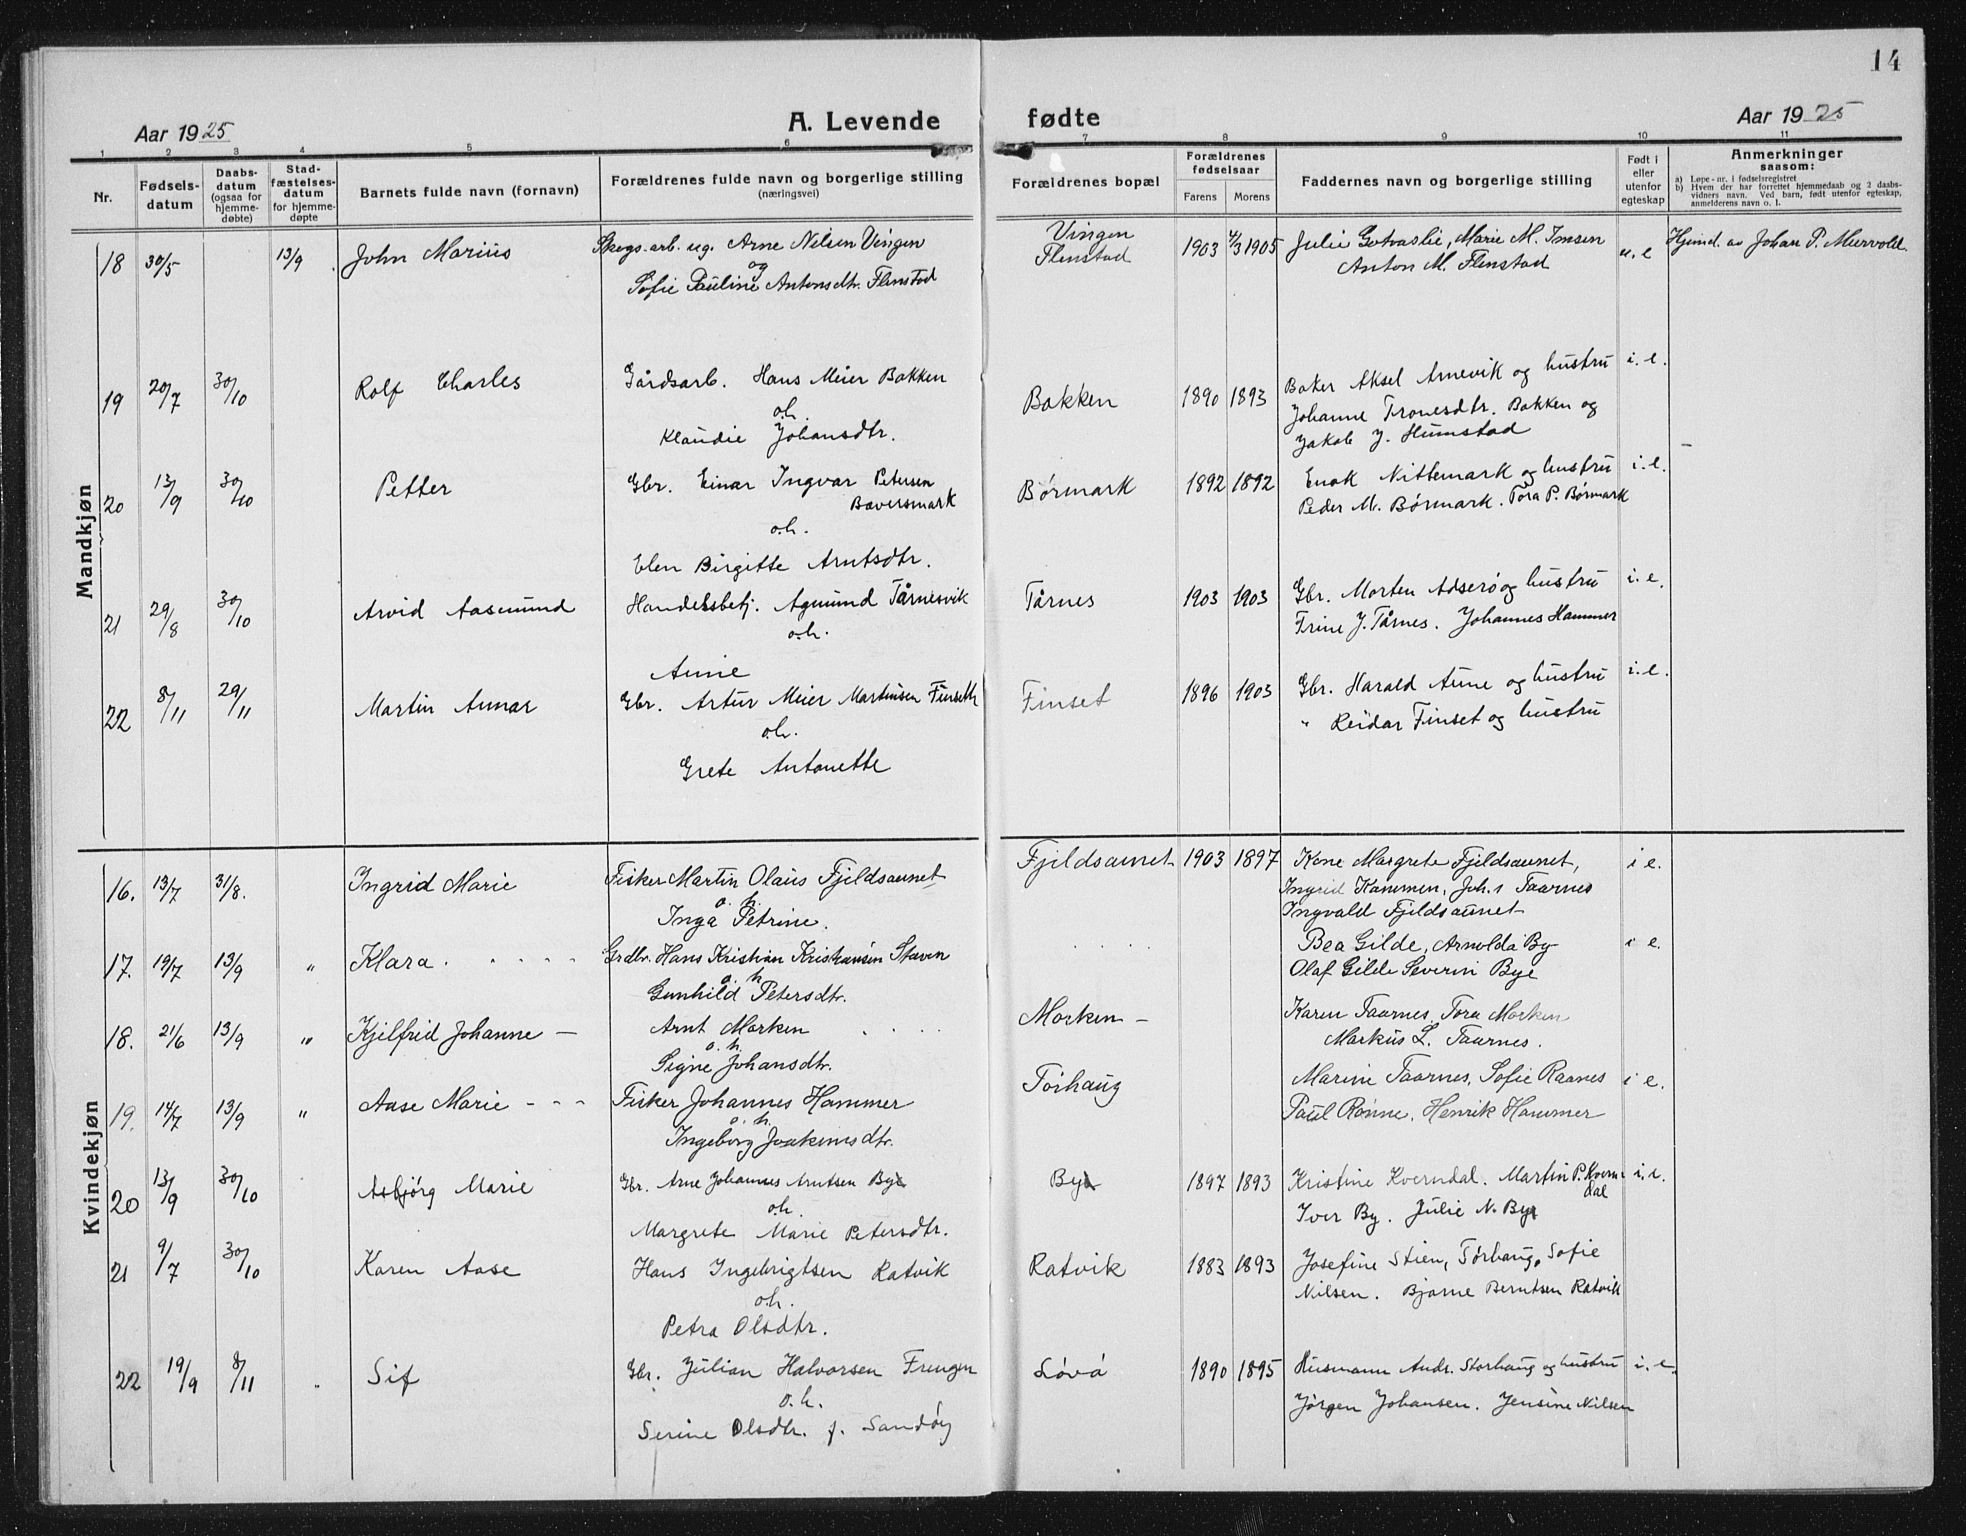 14
Aar 1925 A. Levende fødte Aar 1925
1 2 3 4 5 6 7 8 9 10 11
Nr.
Fødsels-
datum
Daabs-
datum
(ogsaa for
hjemme-
døbte)
Stad-
fæstelses-
datum
for hjemme-
døpte
Barnets fulde navn (fornavn)
Forældrenes fulde navn og borgerlige stilling
(næringsvei)
Forældrenes bopæl
Forældrenes
fødselsaar
Farens Morens
Faddernes navn og borgerlige stilling
Født i
eller
utenfor
egteskap
Anmerkninger
saasom:
a) Løpe-nr. i fødselsregistret
b) Hvem der har forrettet hjemmedaab og 2 daabs-
vidners navn. Ved barn, født utenfor egteskap,
anmelderens navn o. l.
Mandkjøn
18 30/5 13/9 John Marius
Skogs-arb. ug. Arne Nilsen Vingen
og
Sofie Pauline Antonsdtr. Flenstad
Vingen
Flenstad
1903 4/3 1905
Julie Gotvaslie, Marie M. Imsen
Anton M. Flenstad
u. e
Hjemd. av Johan P. Murvold.
19 20/7 30/10 Rolf Charles
Gårdsarb. Hans Meier Bakken
o.h.
Klaudie Johansdtr.
Bakken 1890 1893
Baker Aksel Arnevik og hustru
Johanne Tronesdtr. Bakken og
Jakob J. Humstad
i. e.
20 13/9 30/10 Petter
Gbr. Einar Ingvar Petersen
Bæversmark
o.h.
Elen Birgitte Arntsdtr.
Børmark 1892 1892
Enok Nittemark og hustru
Peder M. Børmark. Tora P. Børmark
i. e.
21 29/8 30/10 Arvid Aasmund
Handelsbetj. Agmund Tårnesvik
o.h.
Anne
Tårnes 1903 1903
Gbr. Morten Adserø og hustru
Trine J. Tårnes. Johannes Hammer
i. e.
22 8/11 29/11 Martin Annar
Gbr. Artur Meier Martinsen Finseth
o.h.
Grete Antonette
Finset 1896 1903
Gbr. Harald Aune og hustru
" Reidar Finset og hustru
i. e.
Kvindekjøn
16. 13/7 31/8. Ingrid Marie
Fisker Martin Olaus Fjeldsaunet
o. h.
Inga Petrine.
Fjeldsaunet 1903 1897
Kone Margrete Fjeldsaunet,
Ingrid Kammen, Joh.s Taarnes
Ingvald Fjeldsaunet
i e.
17. 19/7 13/9 " Klara
Grdbr. Hans Kristian Kristiansen Staven
o. h.
Gunhild Petersdtr.
Bea Gilde, Arnolda By
Olaf Gilde Severin Bye
i e.
18. 21/6 13/9 " Kjelfrid Johanne –
Arnt Morken
o. h.
Signe Johansdtr.
Morken –
Karen Taarnes, Tora Morken
Markus L. Taarnes.
19. 14/7 13/9 " Aase Marie - - -
Fisker Johannes Hammer
o. h.
Ingeborg Joakimsdtr.
Torhaug
Marine Taarnes, Sofie Raanes
Paul Rønne, Henrik Hammer
i e.
20 13/9 30/10 Asbjørg Marie
Gbr. Arne Johannes Arntsen Bye
o.h.
Margrete Marie Petersdtr.
Bye 1897 1893
Kristine Kverndal. Martin P. Kvern-
dal
Iver By. Julie N. Bye
i. e.
21 9/7 30/10 Karen Aase
Hans Ingebrigtsen Ratvik
o.h.
Petra Olsdtr.
Ratvik 1883 1893
Josefine Stien, Tørhaug, Sofie
Nilsen. Bjarne Berntsen Ratvik
22 19/9 8/11 Sif
Gbr. Julian Halvorsen Frengen
o.h.
Serine Olsdtr. f. Sandøy
Løvø 1890 1895
Husmann Andr. Storhaug og hustru
Jørgen Johansen. Jensine Nilsen
i. e.